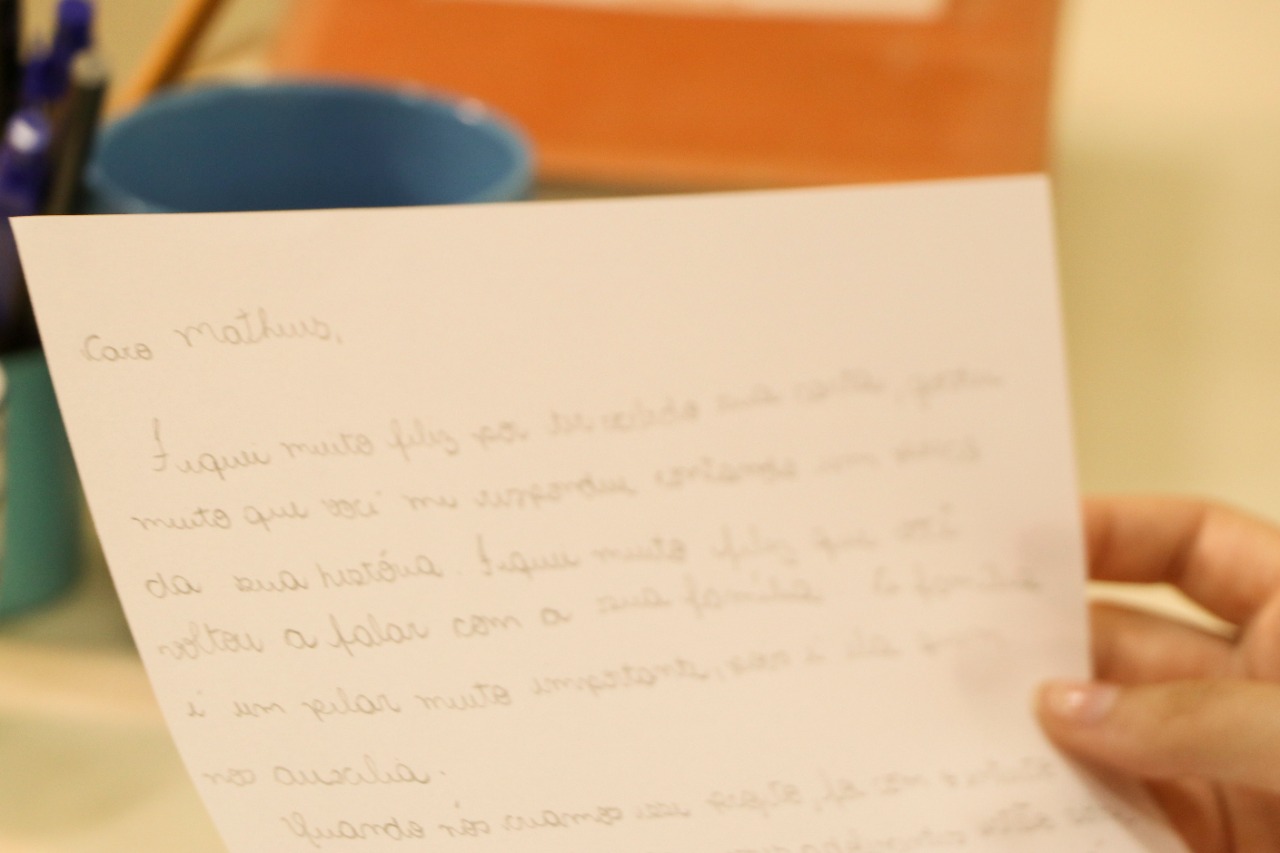 Caro Matheus,
Fiquei muito feliz por ter recebido sua carta, gostei
muito que você me respondeu contando um pouco
da sua história. Fiquei muito feliz que você
voltou a falar com a sua família. A família
é um pilar muito importante, pois é ela que
nos auxilia.
Quando nós criamos esse projeto,